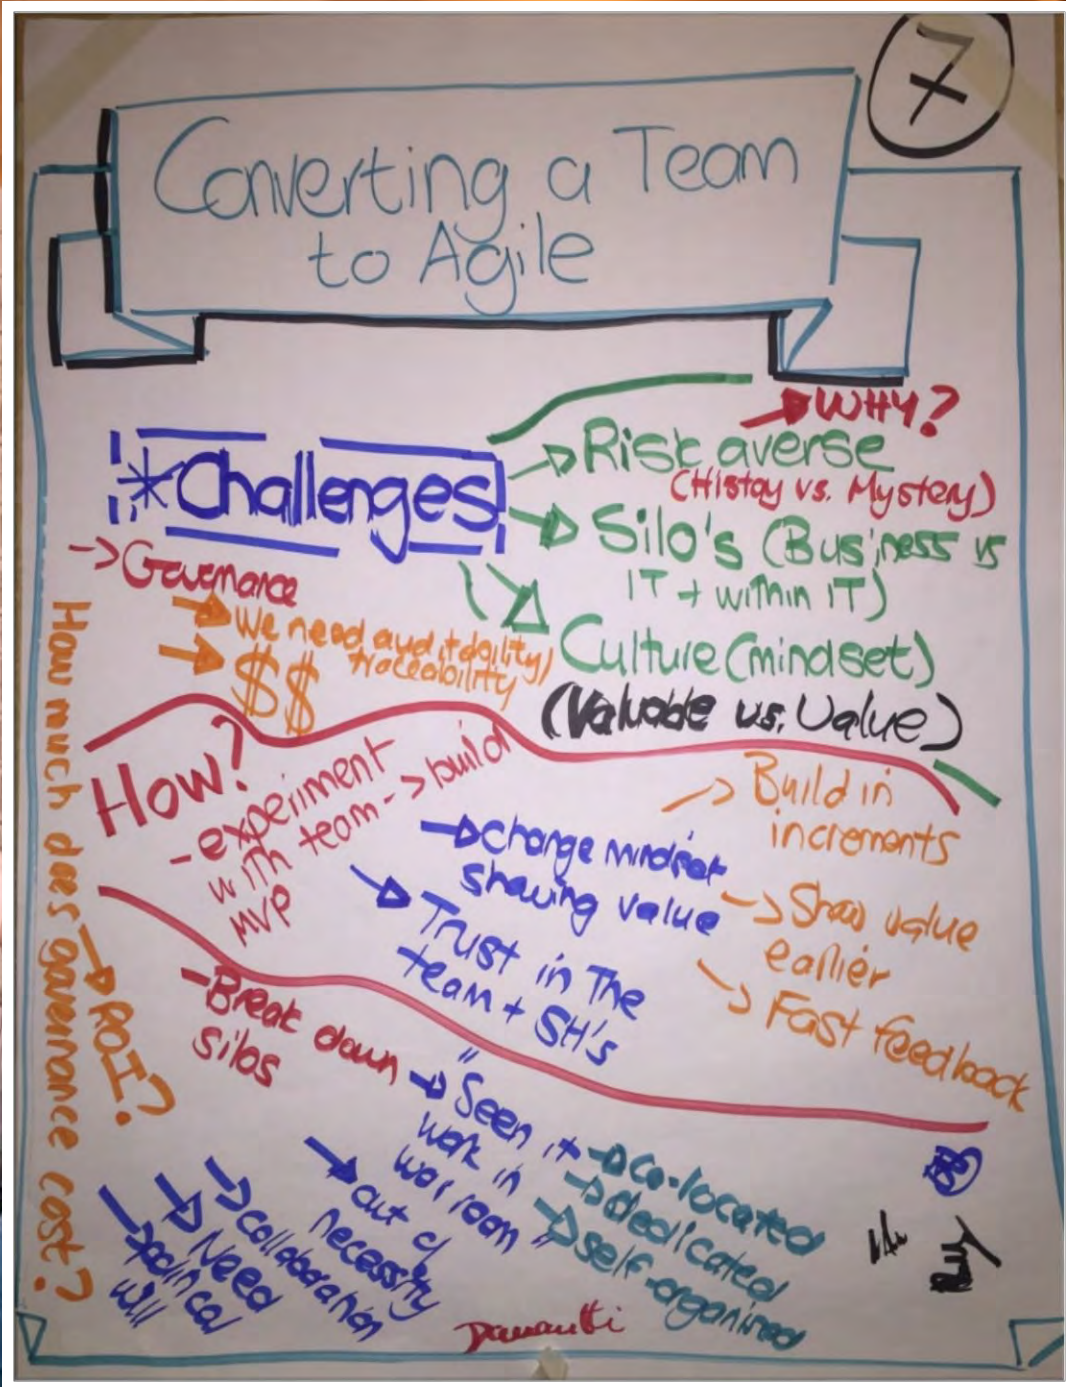 7
Converting a Team
to Agile
→ WHY?
*Challenges
→ Risk averse
(History vs. Mystery)
→ Silo's (Business vs
IT + within IT)
→ Culture (mindset)
(Valuable vs. Value)
-> Governance
→ We need auditability/
traceability
→ $$
How much does governance cost?
→ ROI?
How?
- experiment
with team -> build
MVP
→ Change mindset
showing value
→ Trust in The
team + SH's
→ Build in
increments
→ Show value
earlier
→ Fast feedback
- Break down
silos
→ "Seen it
work in
war room"
→ Co-located
→ dedicated
→ self-organised
→ out of
necessity
→ Collaboration
→ Need
will